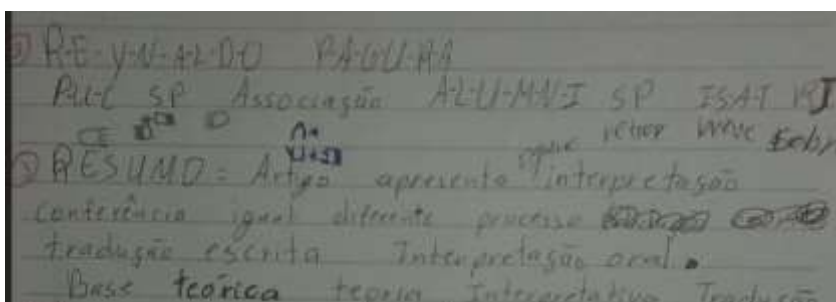 R-E-Y-N-A-L-D-O PAGURA
PUC SP Associação A-L-U-M-N-I SP ISAT RJ
RESUMO = Artigo apresenta interpretação
conferência igual diferente processo
tradução escrita Interpretação oral.
Base teórica teoria Interpretativa Tradução